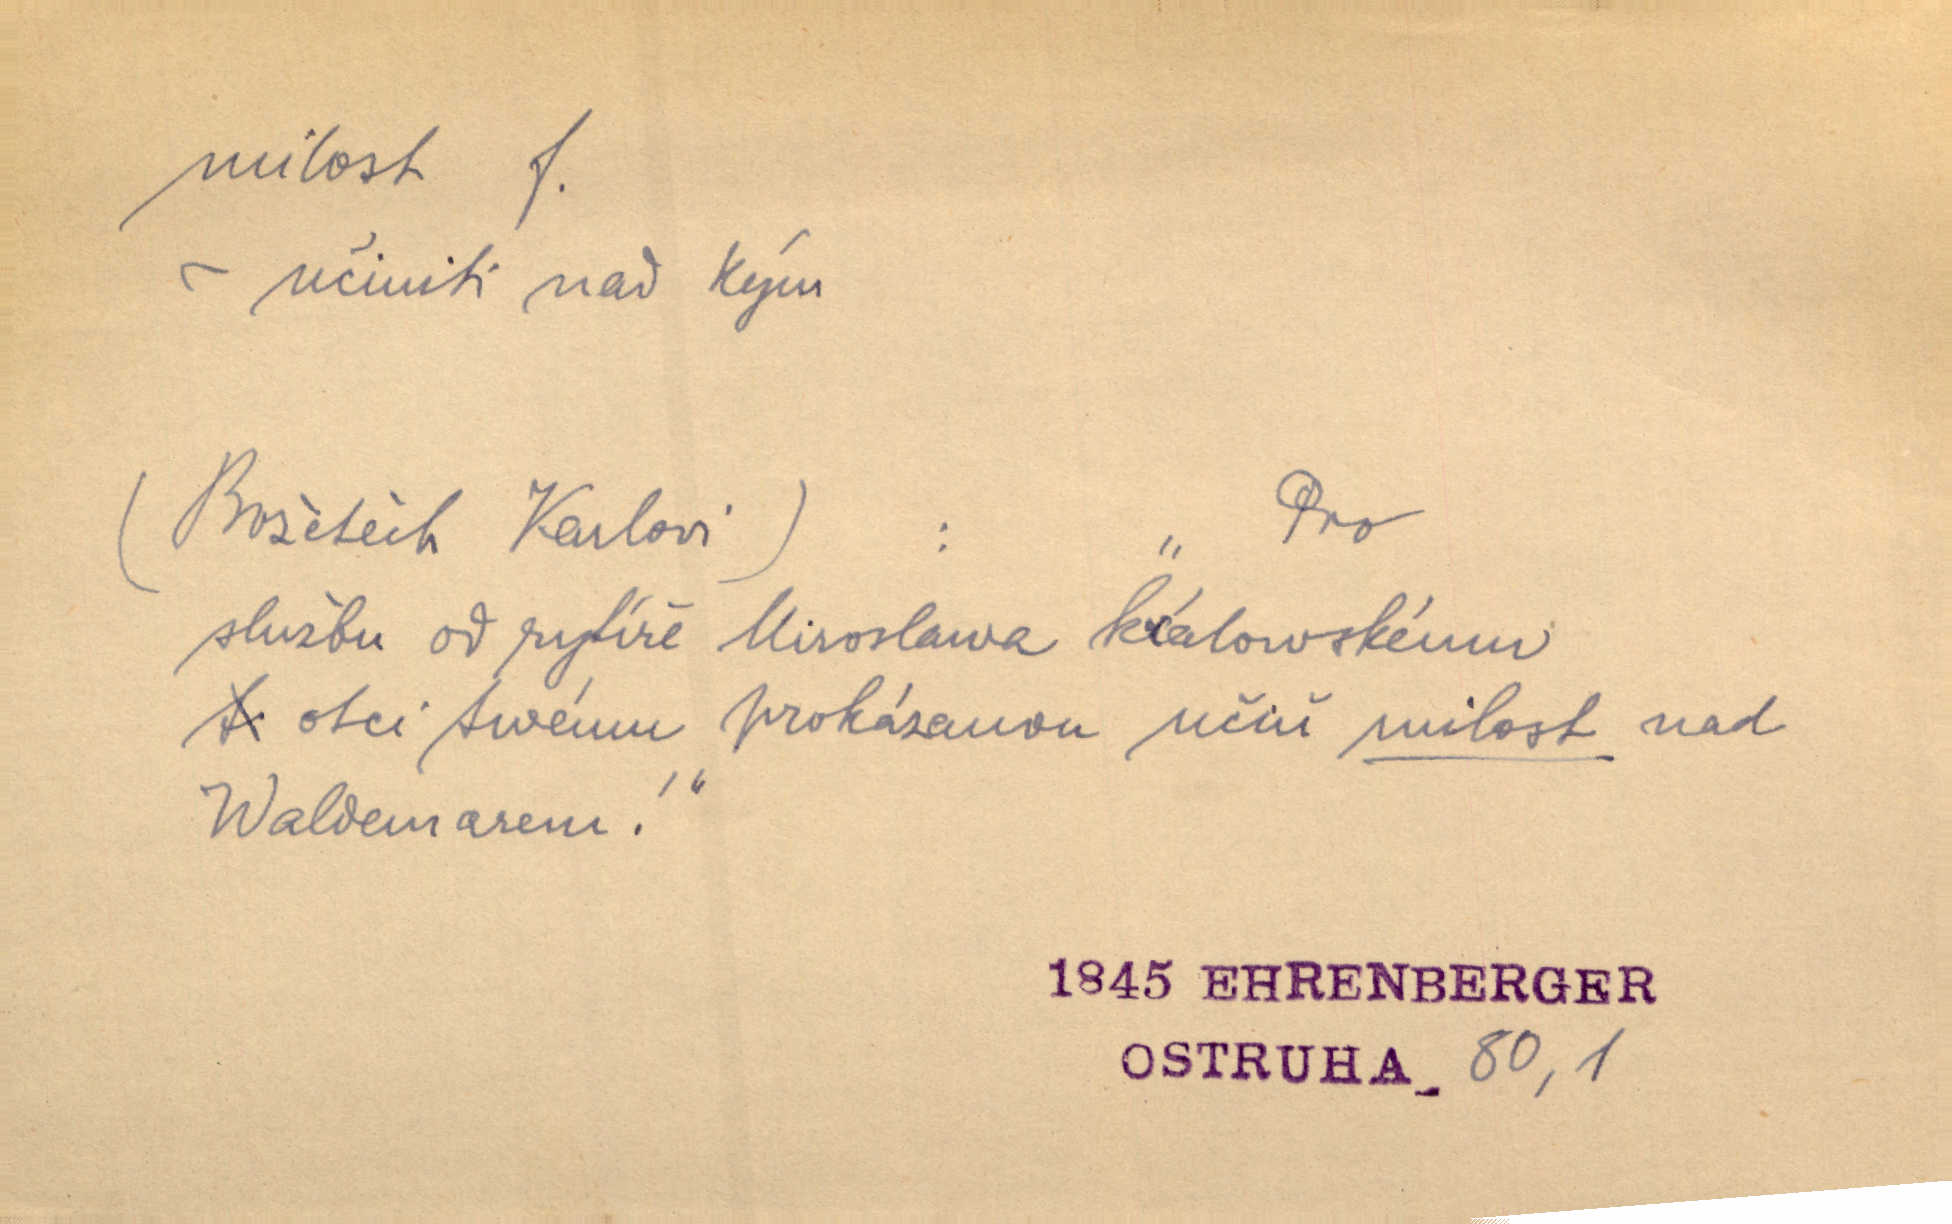 milost f.
~ učiniti nad kým
(Božetěch Karlovi) : „Pro
službu od rytíře Miroslawa králowskému
otci twému prokázanou učiň milost nad
Waldemarem!“
1845 EHRENBERGER
OSTRUHA_ 80,1